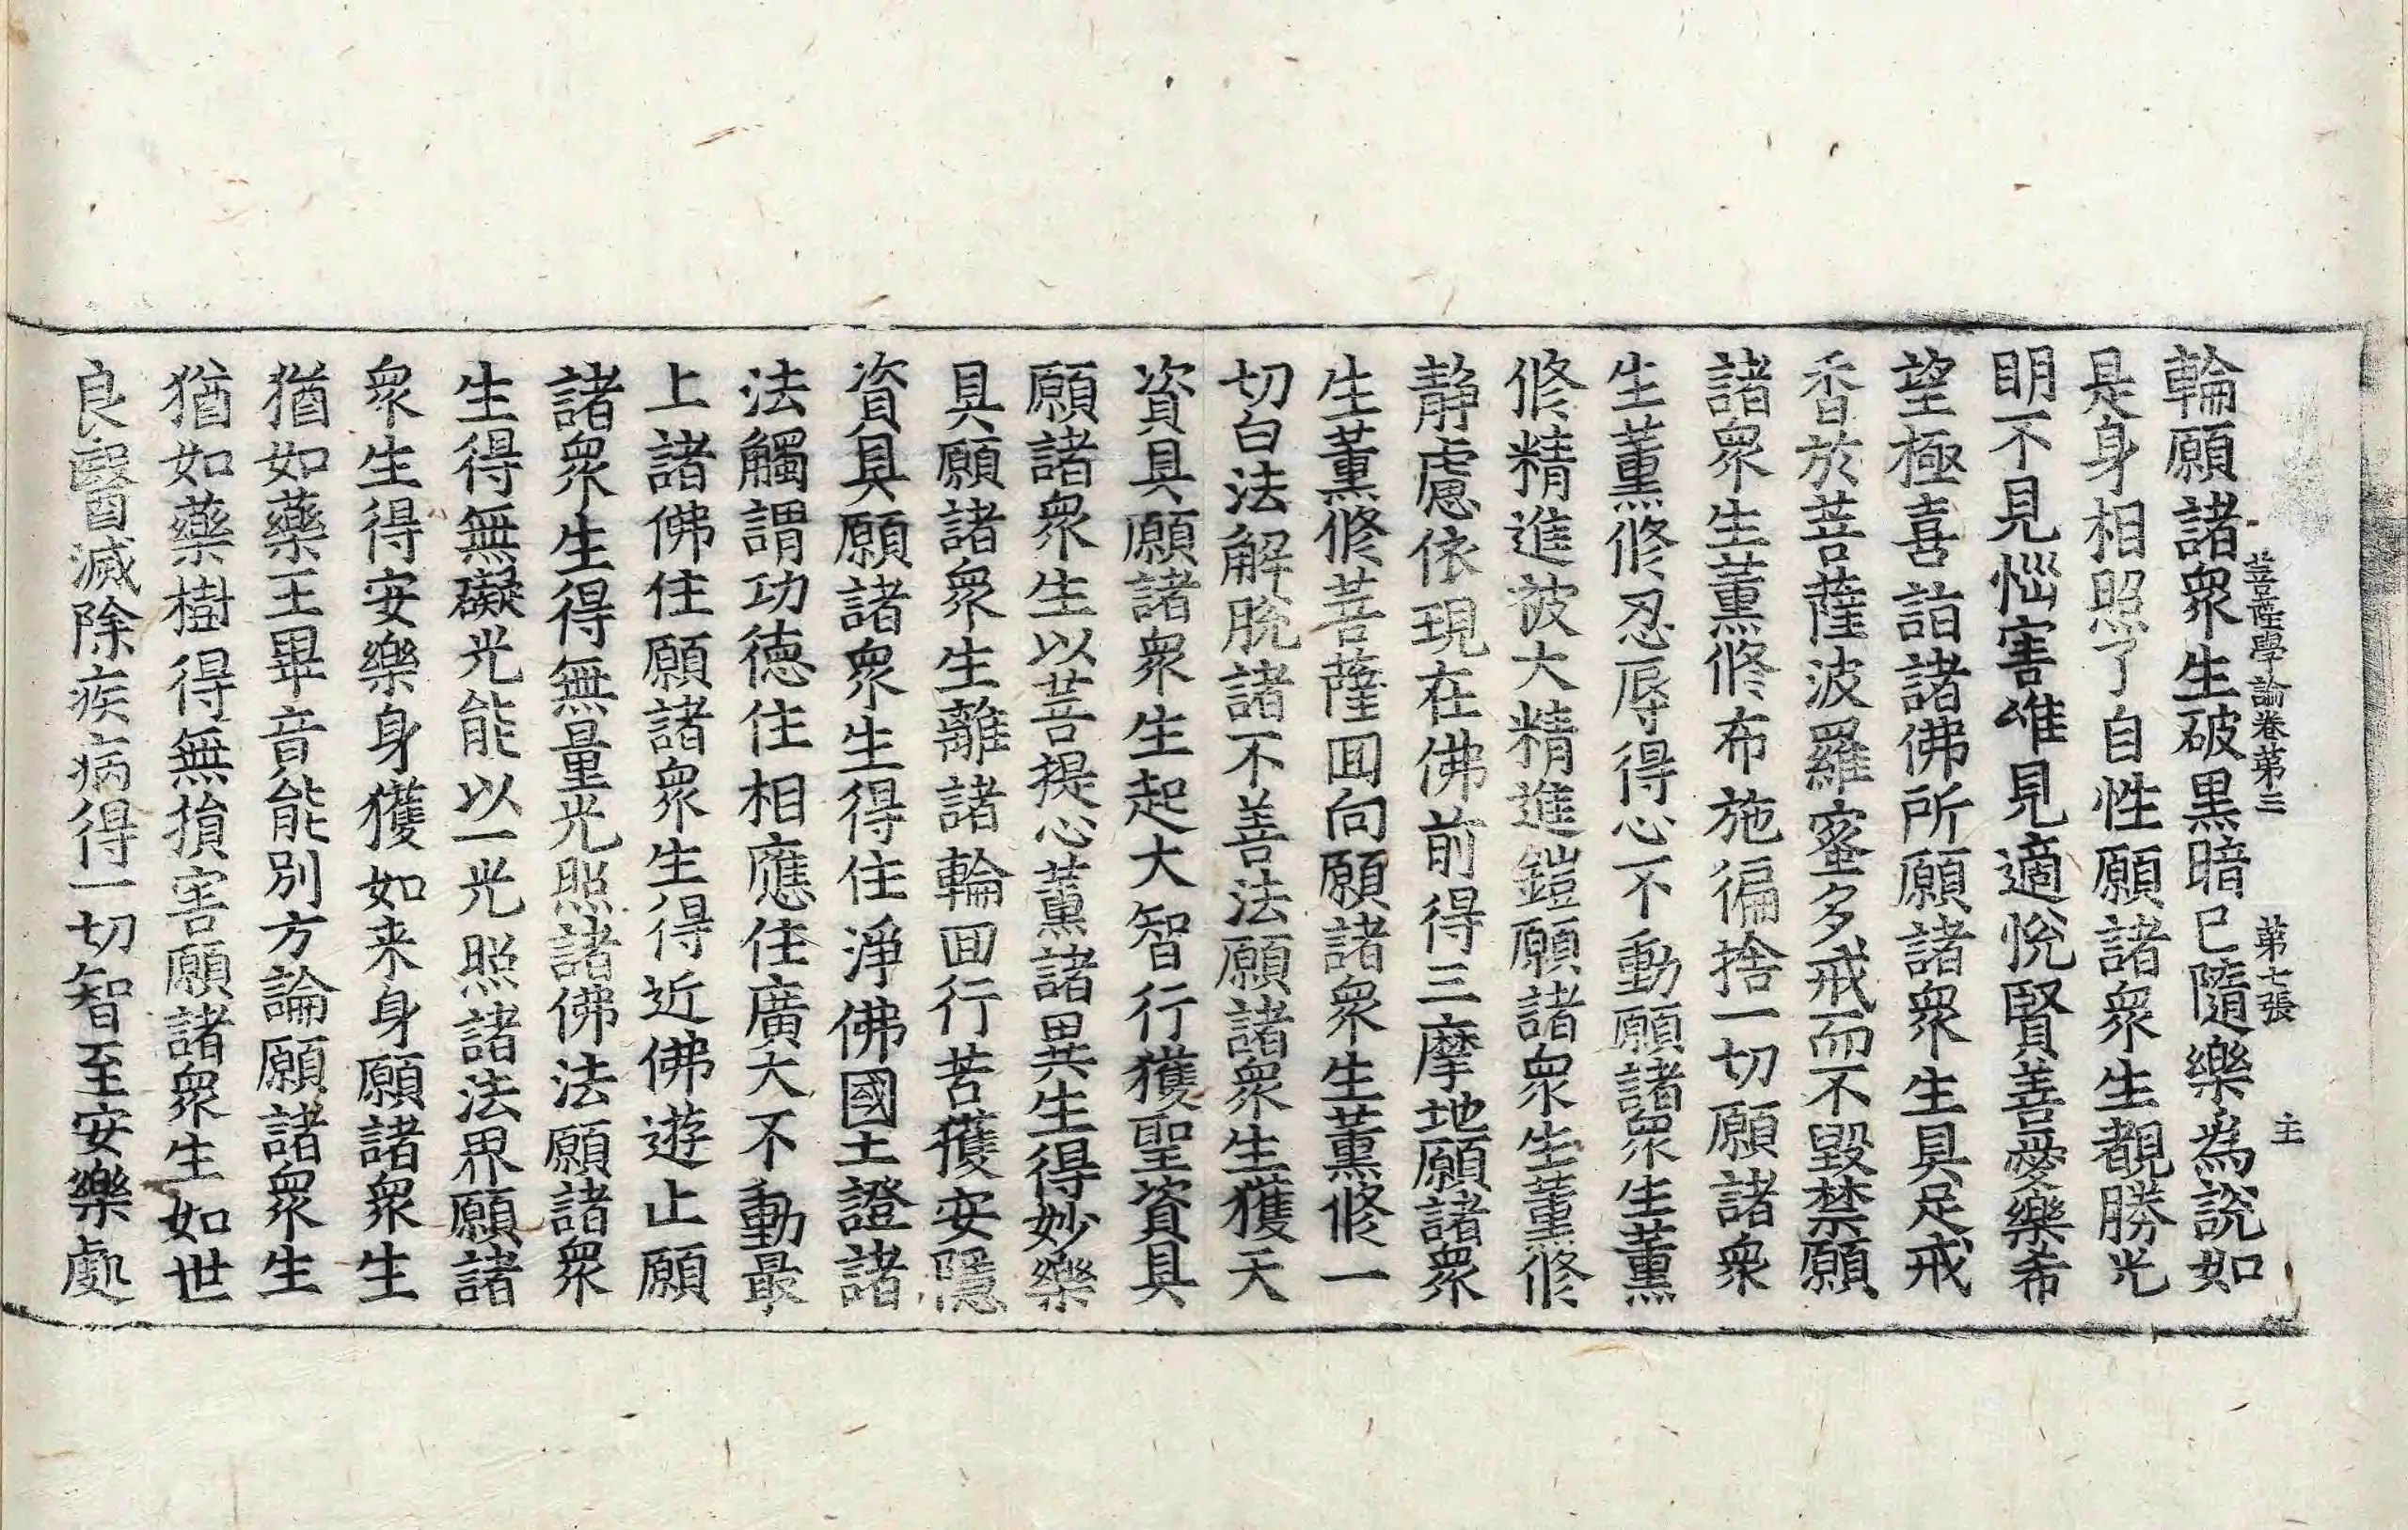 菩薩學論卷第三 第七張 主
輪願諸衆生破黑暗已隨樂為說如
是身相照了自性願諸衆生覩勝光
明不見惱害唯見適悅賢善愛樂希
望極喜詣諸佛所願諸衆生具足戒
香於菩薩波羅蜜多戒而不毀禁願
諸衆生薰修布施徧捨一切願諸衆
生薰修忍辱得心不動願諸衆生薰
修精進被大精進鎧願諸衆生薰修
靜慮依現在佛前得三摩地願諸衆
生薰修菩薩回向願諸衆生薰修一
切白法解脫諸不善法願諸衆生獲天
資具願諸衆生起大智行獲聖資具
願諸衆生以菩提心薰諸異生得妙樂
具願諸衆生離諸輪回行苦獲安隱
資具願諸衆生得住淨佛國土證諸
法觸謂功德住相應住廣大不動最
上諸佛住願諸衆生得近佛遊止願
諸衆生得無量光照諸佛法願諸衆
生得無礙光能以一光照諸法界願諸
衆生得安樂身獲如来身願諸衆生
猶如藥王畢音能別方論願諸衆生
猶如藥樹得無損害願諸衆生如世
良醫滅除疾病得一切智至安樂處